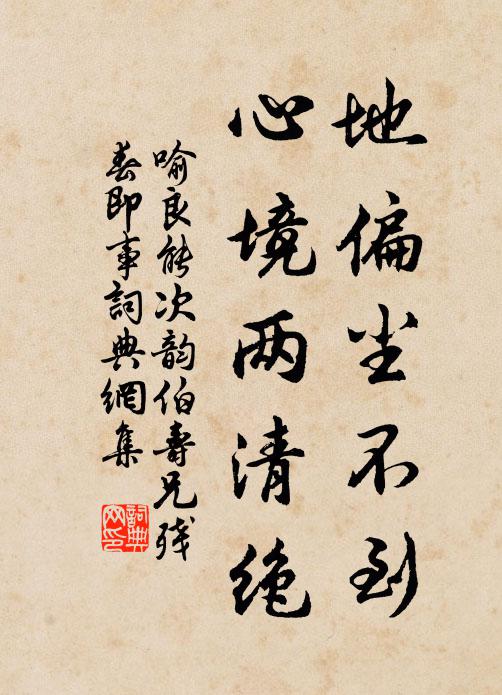 地偏尘不到
心境两清绝
喻良能次韵伯寿兄残
春即事詞典網集
詞典
网印